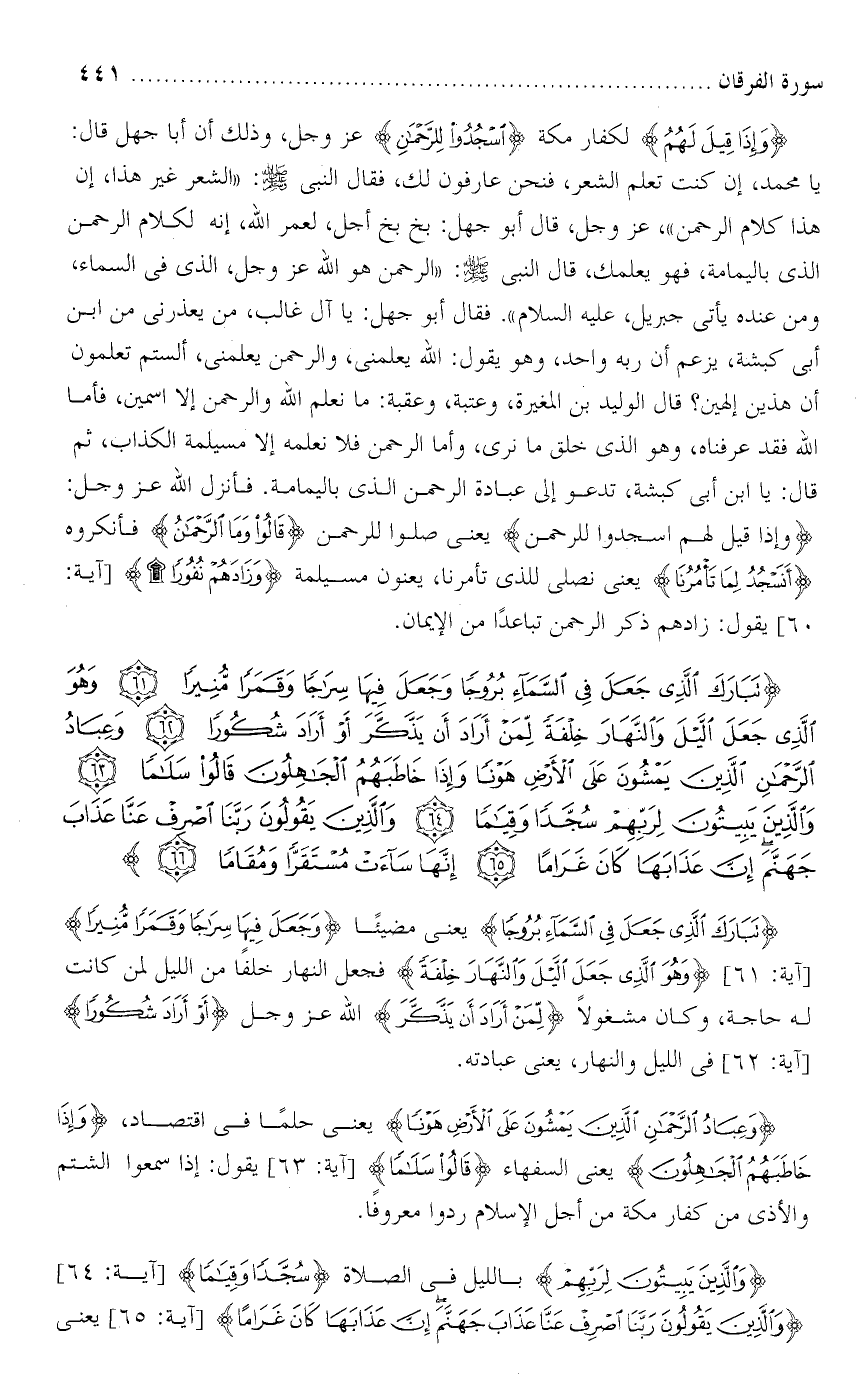 سورة الفرقان ........................................................................ ٤٤١
﴿وَإِذَا قِيلَ لَهُمُ﴾ لكفار مكة ﴿ٱسْجُدُوا۟ لِلرَّحْمَٰنِ﴾ عز وجل، وذلك أن أبا جهل قال:
يا محمد، إن كنت تعلم الشعر، فنحن عارفون لك، فقال النبى ﷺ: «الشعر غير هذا، إن
هذا كلام الرحمن»، عز وجل، قال أبو جهل: بخ بخ أجل، لعمر الله، إنه لكلام الرحمن
الذى باليمامة، فهو يعلمك، قال النبى ﷺ: «الرحمن هو الله عز وجل، الذى فى السماء،
ومن عنده يأتى جبريل، عليه السلام». فقال أبو جهل: يا آل غالب، من يعذرنى من ابن
أبى كبشة، يزعم أن ربه واحد، وهو يقول: الله يعلمنى، والرحمن يعلمنى، ألستم تعلمون
أن هذين إلهين؟ قال الوليد بن المغيرة، وعتبة، وعقبة: ما نعلم الله والرحمن إلا اسمين، فأما
الله فقد عرفناه، وهو الذى خلق ما نرى، وأما الرحمن فلا نعلمه إلا مسيلمة الكذاب، ثم
قال: يا ابن أبى كبشة، تدعو إلى عبادة الرحمن الذى باليمامة. فأنزل الله عز وجل:
﴿وإذا قيل لهم اسجدوا للرحمن﴾ يعنى صلوا للرحمن ﴿قَالُوا۟ وَمَا ٱلرَّحْمَٰنُ﴾ فأنكروه
﴿أَنَسْجُدُ لِمَا تَأْمُرُنَا﴾ يعنى نصلى للذى تأمرنا، يعنون مسيلمة ﴿وَزَادَهُمْ نُفُورًا ۩﴾ [آية:
٦٠] يقول: زادهم ذكر الرحمن تباعدًا من الإيمان.
﴿تَبَارَكَ ٱلَّذِى جَعَلَ فِى ٱلسَّمَآءِ بُرُوجًا وَجَعَلَ فِيهَا سِرَٰجًا وَقَمَرًا مُّنِيرًا ٦١ وَهُوَ
ٱلَّذِى جَعَلَ ٱلَّيْلَ وَٱلنَّهَارَ خِلْفَةً لِّمَنْ أَرَادَ أَن يَذَّكَّرَ أَوْ أَرَادَ شُكُورًا ٦٢ وَعِبَادُ
ٱلرَّحْمَٰنِ ٱلَّذِينَ يَمْشُونَ عَلَى ٱلْأَرْضِ هَوْنًا وَإِذَا خَاطَبَهُمُ ٱلْجَٰهِلُونَ قَالُوا۟ سَلَٰمًا ٦٣
وَٱلَّذِينَ يَبِيتُونَ لِرَبِّهِمْ سُجَّدًا وَقِيَٰمًا ٦٤ وَٱلَّذِينَ يَقُولُونَ رَبَّنَا ٱصْرِفْ عَنَّا عَذَابَ
جَهَنَّمَ ۖ إِنَّ عَذَابَهَا كَانَ غَرَامًا ٦٥ إِنَّهَا سَآءَتْ مُسْتَقَرًّا وَمُقَامًا ٦٦ ﴾
﴿تَبَارَكَ ٱلَّذِى جَعَلَ فِى ٱلسَّمَآءِ بُرُوجًا﴾ يعنى مضيئًا ﴿وَجَعَلَ فِيهَا سِرَٰجًا وَقَمَرًا مُّنِيرًا﴾
[آية: ٦١] ﴿وَهُوَ ٱلَّذِى جَعَلَ ٱلَّيْلَ وَٱلنَّهَارَ خِلْفَةً﴾ فجعل النهار خلفًا من الليل لمن كانت
له حاجة، وكان مشغولاً ﴿لِّمَنْ أَرَادَ أَن يَذَّكَّرَ﴾ الله عز وجل ﴿أَوْ أَرَادَ شُكُورًا﴾
[آية: ٦٢] فى الليل والنهار، يعنى عبادته.
﴿وَعِبَادُ ٱلرَّحْمَٰنِ ٱلَّذِينَ يَمْشُونَ عَلَى ٱلْأَرْضِ هَوْنًا﴾ يعنى حلمًا فى اقتصاد، ﴿وَإِذَا
خَاطَبَهُمُ ٱلْجَٰهِلُونَ﴾ يعنى السفهاء ﴿قَالُوا۟ سَلَٰمًا﴾ [آية: ٦٣] يقول: إذا سمعوا الشتم
والأذى من كفار مكة من أجل الإسلام ردوا معروفًا.
﴿وَٱلَّذِينَ يَبِيتُونَ لِرَبِّهِمْ﴾ بالليل فى الصلاة ﴿سُجَّدًا وَقِيَٰمًا﴾ [آية: ٦٤]
﴿وَٱلَّذِينَ يَقُولُونَ رَبَّنَا ٱصْرِفْ عَنَّا عَذَابَ جَهَنَّمَ ۖ إِنَّ عَذَابَهَا كَانَ غَرَامًا﴾ [آية: ٦٥] يعنى